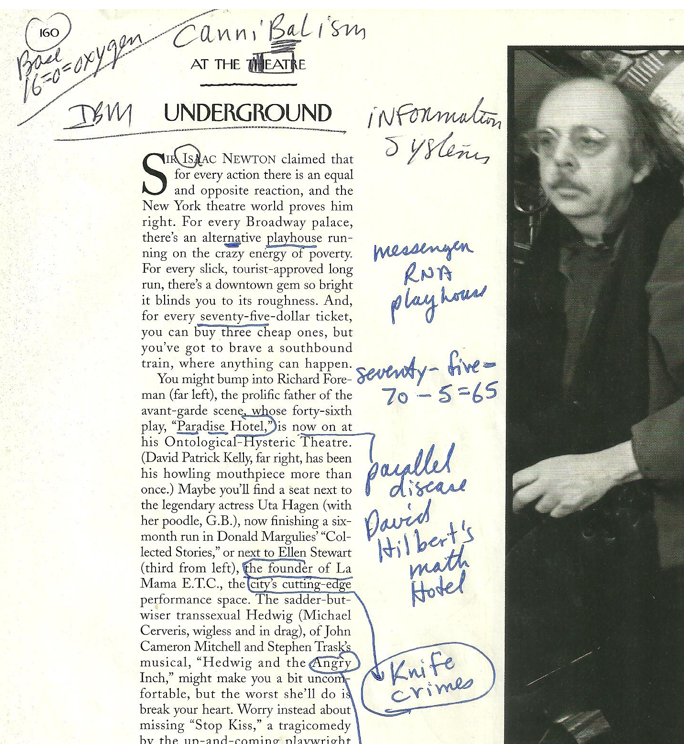 160
Base
16=0=oxygen
CanniBaLism
AT THE THEATRE
IBM
UNDERGROUND
INFormation
Systems
SIR ISAAC NEWTON claimed that
for every action there is an equal
and opposite reaction, and the
New York theatre world proves him
right. For every Broadway palace,
there's an alternative playhouse run-
ning on the crazy energy of poverty.
For every slick, tourist-approved long
run, there's a downtown gem so bright
it blinds you to its roughness. And,
for every seventy-five-dollar ticket,
you can buy three cheap ones, but
you've got to brave a southbound
train, where anything can happen.
You might bump into Richard Fore-
man (far left), the prolific father of the
avant-garde scene, whose forty-sixth
play, "Paradise Hotel," is now on at
his Ontological-Hysteric Theatre.
(David Patrick Kelly, far right, has been
his howling mouthpiece more than
once.) Maybe you'll find a seat next to
the legendary actress Uta Hagen (with
her poodle, G.B.), now finishing a six-
month run in Donald Margulies' "Col-
lected Stories," or next to Ellen Stewart
(third from left), the founder of La
Mama E.T.C., the city's cutting-edge
performance space. The sadder-but-
wiser transsexual Hedwig (Michael
Cerveris, wigless and in drag), of John
Cameron Mitchell and Stephen Trask's
musical, "Hedwig and the Angry
Inch," might make you a bit uncom-
fortable, but the worst she'll do is
break your heart. Worry instead about
missing "Stop Kiss," a tragicomedy
by the up-and-coming playwright
messenger
RNA
playhouse
seventy-five=
70-5=65
parallel
disease
David
Hilbert's
math
Hotel
Knife
crimes